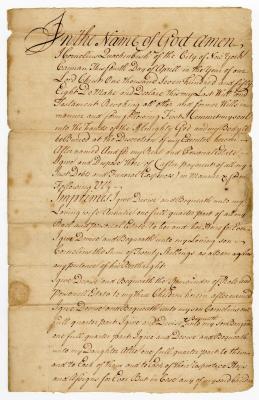 In the Name of God Amen
I Cornelius Quackenbush of the City of New York
Carman This fourth Day of Aprill in the Year of our
Lord Christ One thousand Seven hundred and fifty
Eight Do Make and Declare this my Last Will and
Testament Revoking all other and former Wills in
manner and form following First Recommending my soul
into the hands of the Almighty God and my Body to
be Buried at the Discretion of my Executors herein
After named And for my Real and Personal Estate
I give and Dispose thereof (after payment of all my
Just Debts and Funeral Expences) in Manner & form
following Viz
Imprimis I give Devise and Bequeath unto my
Loving wife one full quarter part of all my
Real and personal Estate to her and her heirs for Ever
I give Devise and Bequeath unto my Loving son
Cornelius the Sum of Twenty Shillings as a barr against
any pretence of his Birthright
I give Devise and Bequeath the Remainder of Real and
personal Estate to my three Children herein aftermentioned
I give Devise and Bequeath unto my son Cornelius one
full quarter part I give and Devise and Bequeath unto my Son Benjamin
one full quarter part I give and Devise and Bequeath
unto my Daughter one full quarter part to them
and to Each of them and to Each of their respective Heirs
and Assigns for Ever But in Case any of my said Children